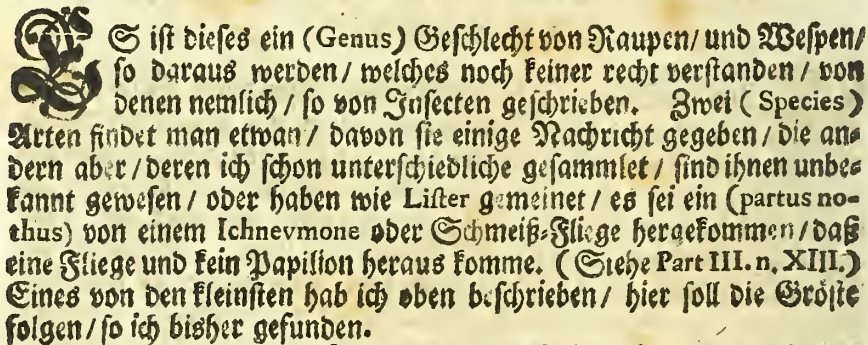 ES ist dieses ein (Genus) Geschlecht von Raupen/ und Wespen/
so daraus werden/ welches noch keiner recht verstanden/ von
denen nemlich/ so von Insecten geschrieben. Zwei (Species)
Arten findet man etwan/ davon sie einige Nachricht gegeben/ die an-
dern aber/ deren ich schon unterschiedliche gesammlet/ sind ihnen unbe-
kannt gewesen/ oder haben wie Lister gemeinet/ es sei ein (partus no-
thus) von einem Ichnevmone oder Schmeiß-Fliege hergekommen/ daß
eine Fliege und kein Papilion heraus komme. (Siehe Part III. n. XIII.)
Eines von den kleinsten hab ich oben beschrieben/ hier soll die Gröste
folgen/ so ich bisher gefunden.